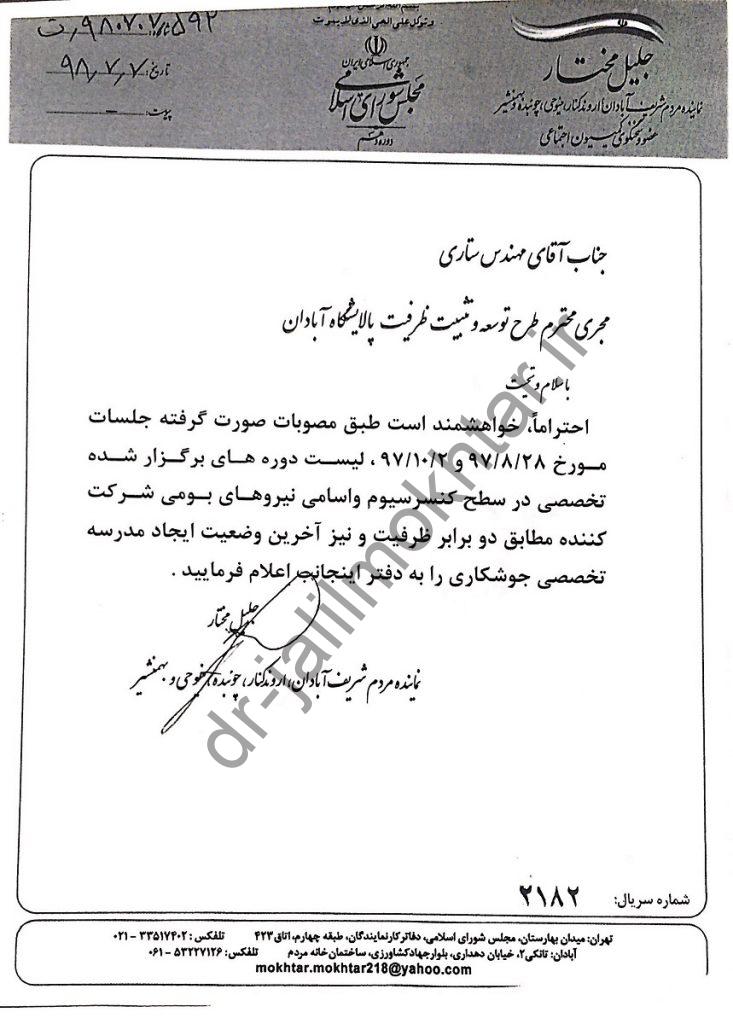 جلیل مختار
نماینده مردم شریف آبادان، اروندکنار، مینوحی، چوئبده و بهمنشیر
عضو و سخنگوی کمیسیون اجتماعی
وتوکل علی الحی الذی لا یموت
جمهوری اسلامی ایران
مجلس شورای اسلامی
دوره دهم
شماره: ۹۸۰۷۰۷٫۵۹۲٫ت
تاریخ: ۹۸٫۷٫۷
پیوست: -
جناب آقای مهندس ستاری
مجری محترم طرح توسعه و تثبیت ظرفیت پالایشگاه آبادان
با سلام و تحیت
احتراماً، خواهشمند است طبق مصوبات صورت گرفته جلسات
مورخ ۹۷/۸/۲۸ و ۹۷/۱۰/۲ ، لیست دوره های برگزار شده
تخصصی در سطح کنسرسیوم واسامی نیروهای بومی شرکت
کننده مطابق دو برابر ظرفیت و نیز آخرین وضعیت ایجاد مدرسه
تخصصی جوشکاری را به دفتر اینجانب اعلام فرمایید .
جلیل مختار
نماینده مردم شریف آبادان، اروندکنار، چوئبده، مینوحی و بهمنشیر
dr-jalilmokhtar.ir
شماره سریال: ۲۱۸۲
تهران: میدان بهارستان، مجلس شورای اسلامی، دفاتر کار نمایندگان، طبقه چهارم، اتاق ۴۲۳ تلفکس: ۳۳۵۱۷۴۰۲ - ۰۲۱
آبادان: تانکی۲، خیابان دهداری، بلوار جهاد کشاورزی، ساختمان خانه مردم تلفکس: ۵۳۲۲۷۱۲۶ - ۰۶۱
mokhtar.mokhtar218@yahoo.com